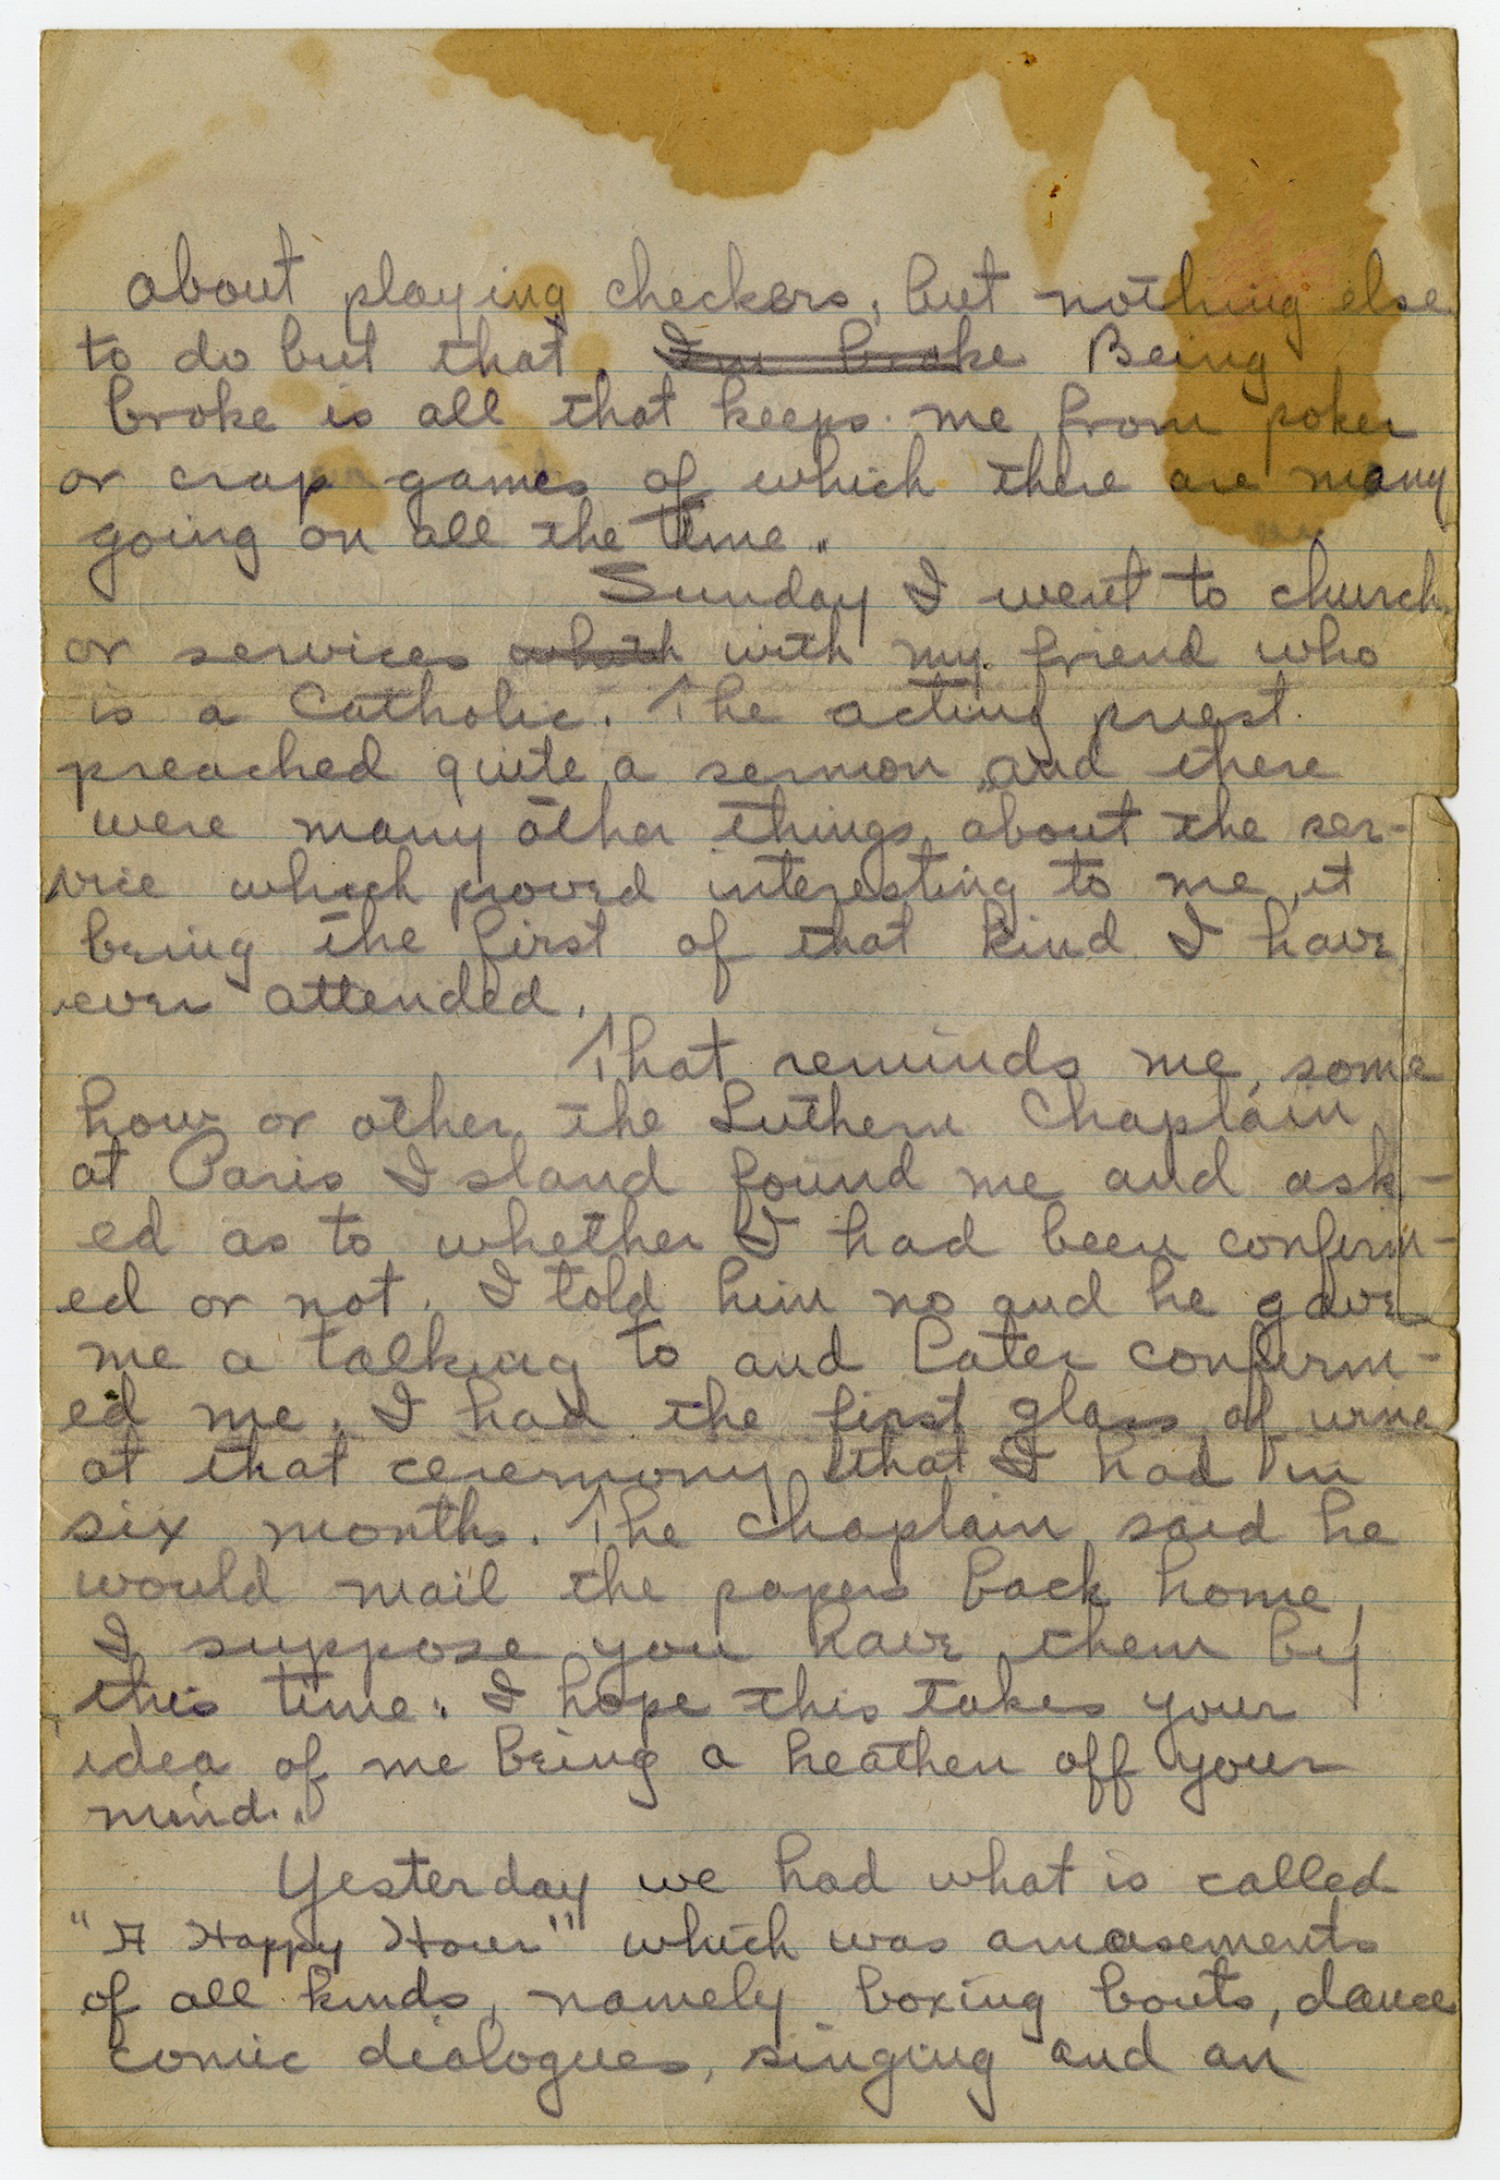 about playing checkers, but nothing else
to do but that. I'm broke Being
broke is all that keeps me from poker
or crap games of which there are many
going on all the time.
Sunday I went to church
or services with my friend who
is a Catholic. The acting priest
preached quite a sermon and there
were many other things about the ser-
vice which proved interesting to me, it
being the first of that kind I have
ever attended.
That reminds me, some
how or other the Luthern Chaplain
at Paris Island found me and ask-
ed as to whether I had been confirm-
ed or not. I told him no and he gave
me a talking to and later confirm-
ed me. I had the first glass of wine
at that ceremony that I had in
six months. The chaplain said he
would mail the papers back home,
I suppose you have them by
this time. I hope this takes your
idea of me being a heathen off your
mind.
Yesterday we had what is called
"A Happy Hour" which was amusements
of all kinds, namely boxing bouts, dance
comic dialogues, singing and an